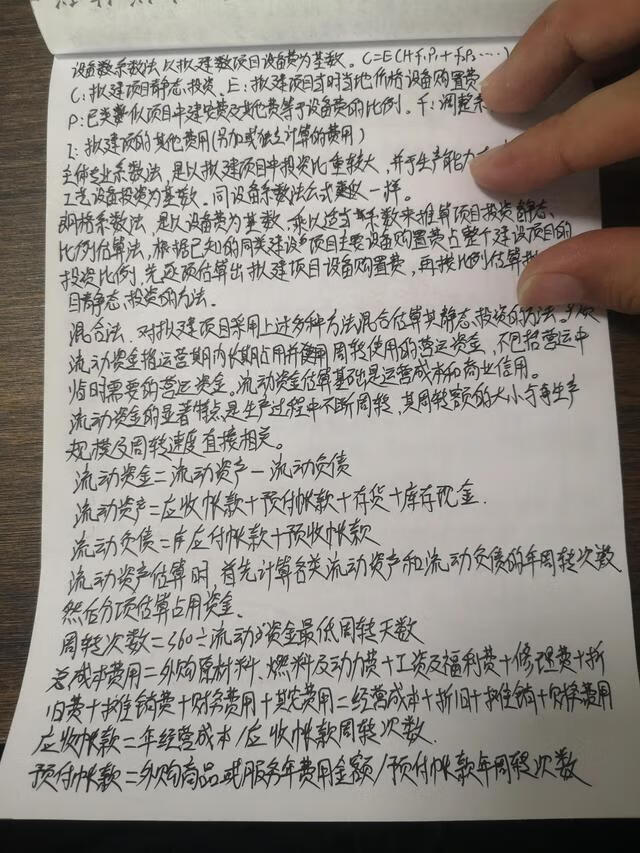 设备系数法以拟建项目设备费为基数。C=E(1+f₁P₁+f₂P₂……)
C:拟建项目静态投资。E:拟建项目当时当地价格设备购置费
P:已类似项目中建安费及其他费等于设备费的比例。f:调整系
I:拟建项的其他费用(另加或独立计算的费用)
主体专业系数法,是以拟建项目中投资比重较大,并于生产能力
工艺设备投资为基数。同设备系数法公式 一样。
朗格系数法,是以设备费为基数,乘以适当系数来推算项目投资静态。
比例估算法,根据已知的同类建设项目主要设备购置费占整个建设项目的
投资比例,先逐项估算出拟建项目设备购置费,再按比例估算拟
目静态投资的方法。
混合法,对拟建项目采用上述多种方法混合估算其静态投资的方法。
流动资金指运营期内长期占用并使用周转使用的营运资金,不包括营运中
临时需要的营运资金。流动资金估算基础是运营成本和商业信用。
流动资金的显著特点是生产过程中不断周转,其周转额的大小与生产
规模及周转速度直接相关。
流动资金=流动资产-流动负债
流动资产=应收帐款+预付帐款+存货+库存现金.
流动负债=应付帐款+预收帐款
流动资产估算时,首先计算各类流动资产和流动负债的年周转次数
然后分项估算占用资金.
周转次数=360÷流动资金最低周转天数
总成本费用=外购原材料、燃料及动力费+工资及福利费+修理费+折
旧费+摊销费+财务费用+其他费用=经营成本+折旧+摊销+财务费用
应收帐款=年经营成本/应收帐款周转次数.
预付帐款=外购商品或服务年费用金额/预付帐款年周转次数